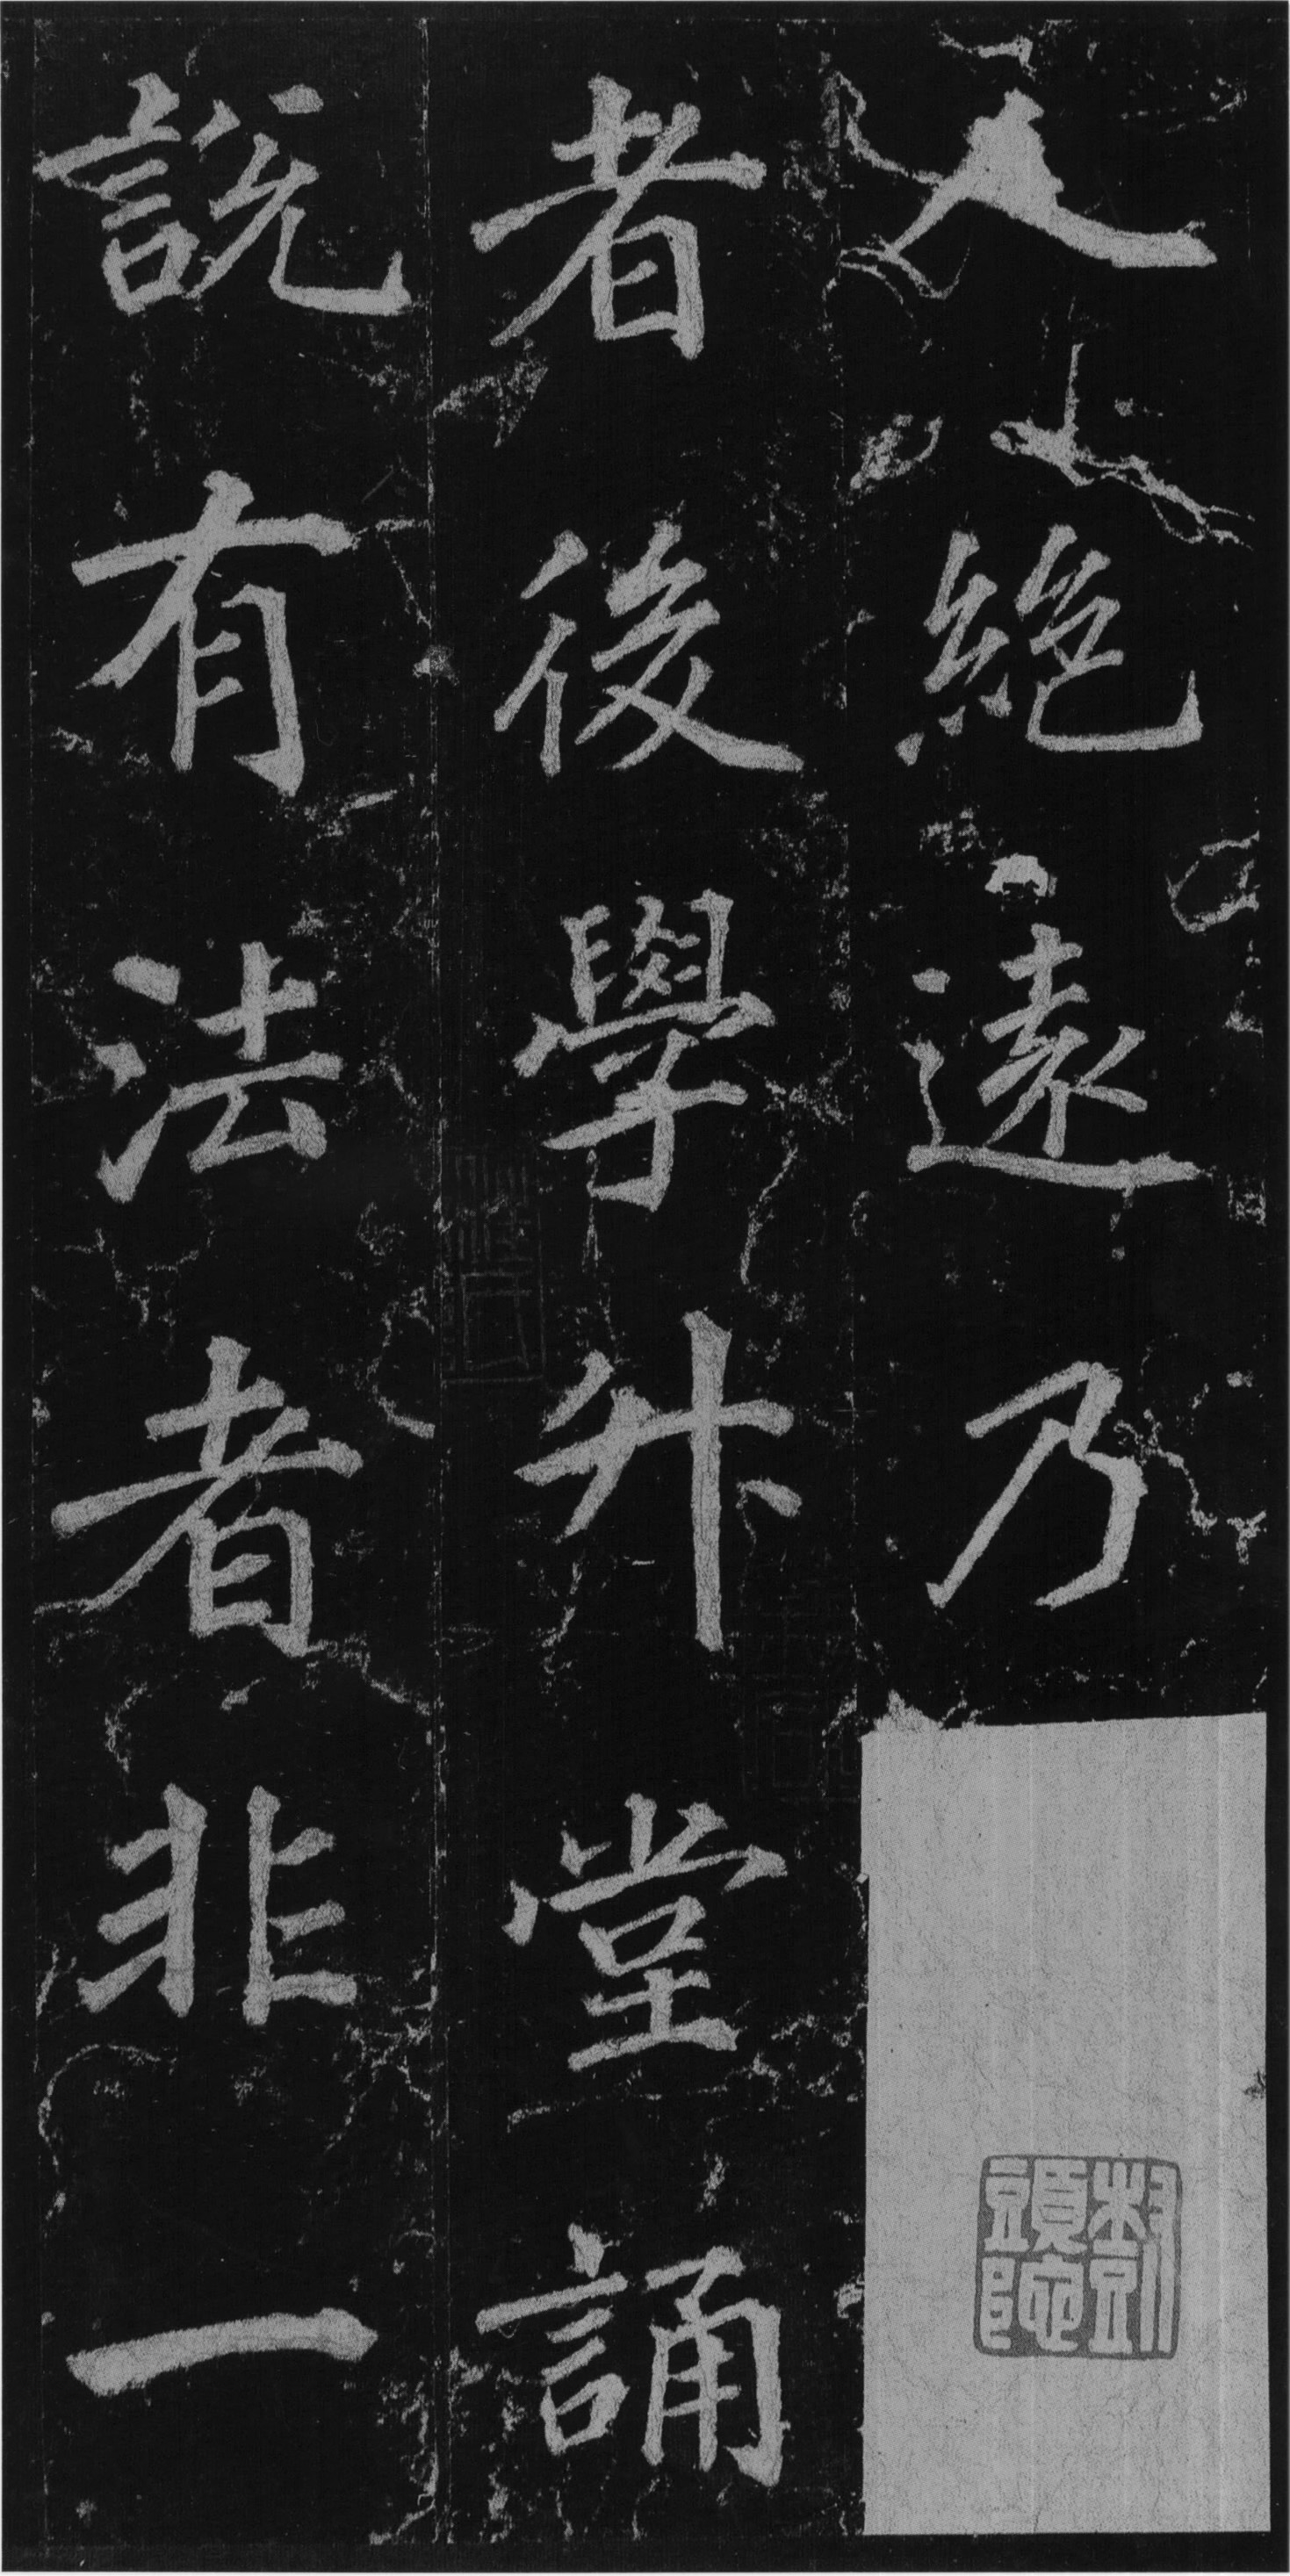 人絶遠乃
者後學升堂誦
說有法者非一